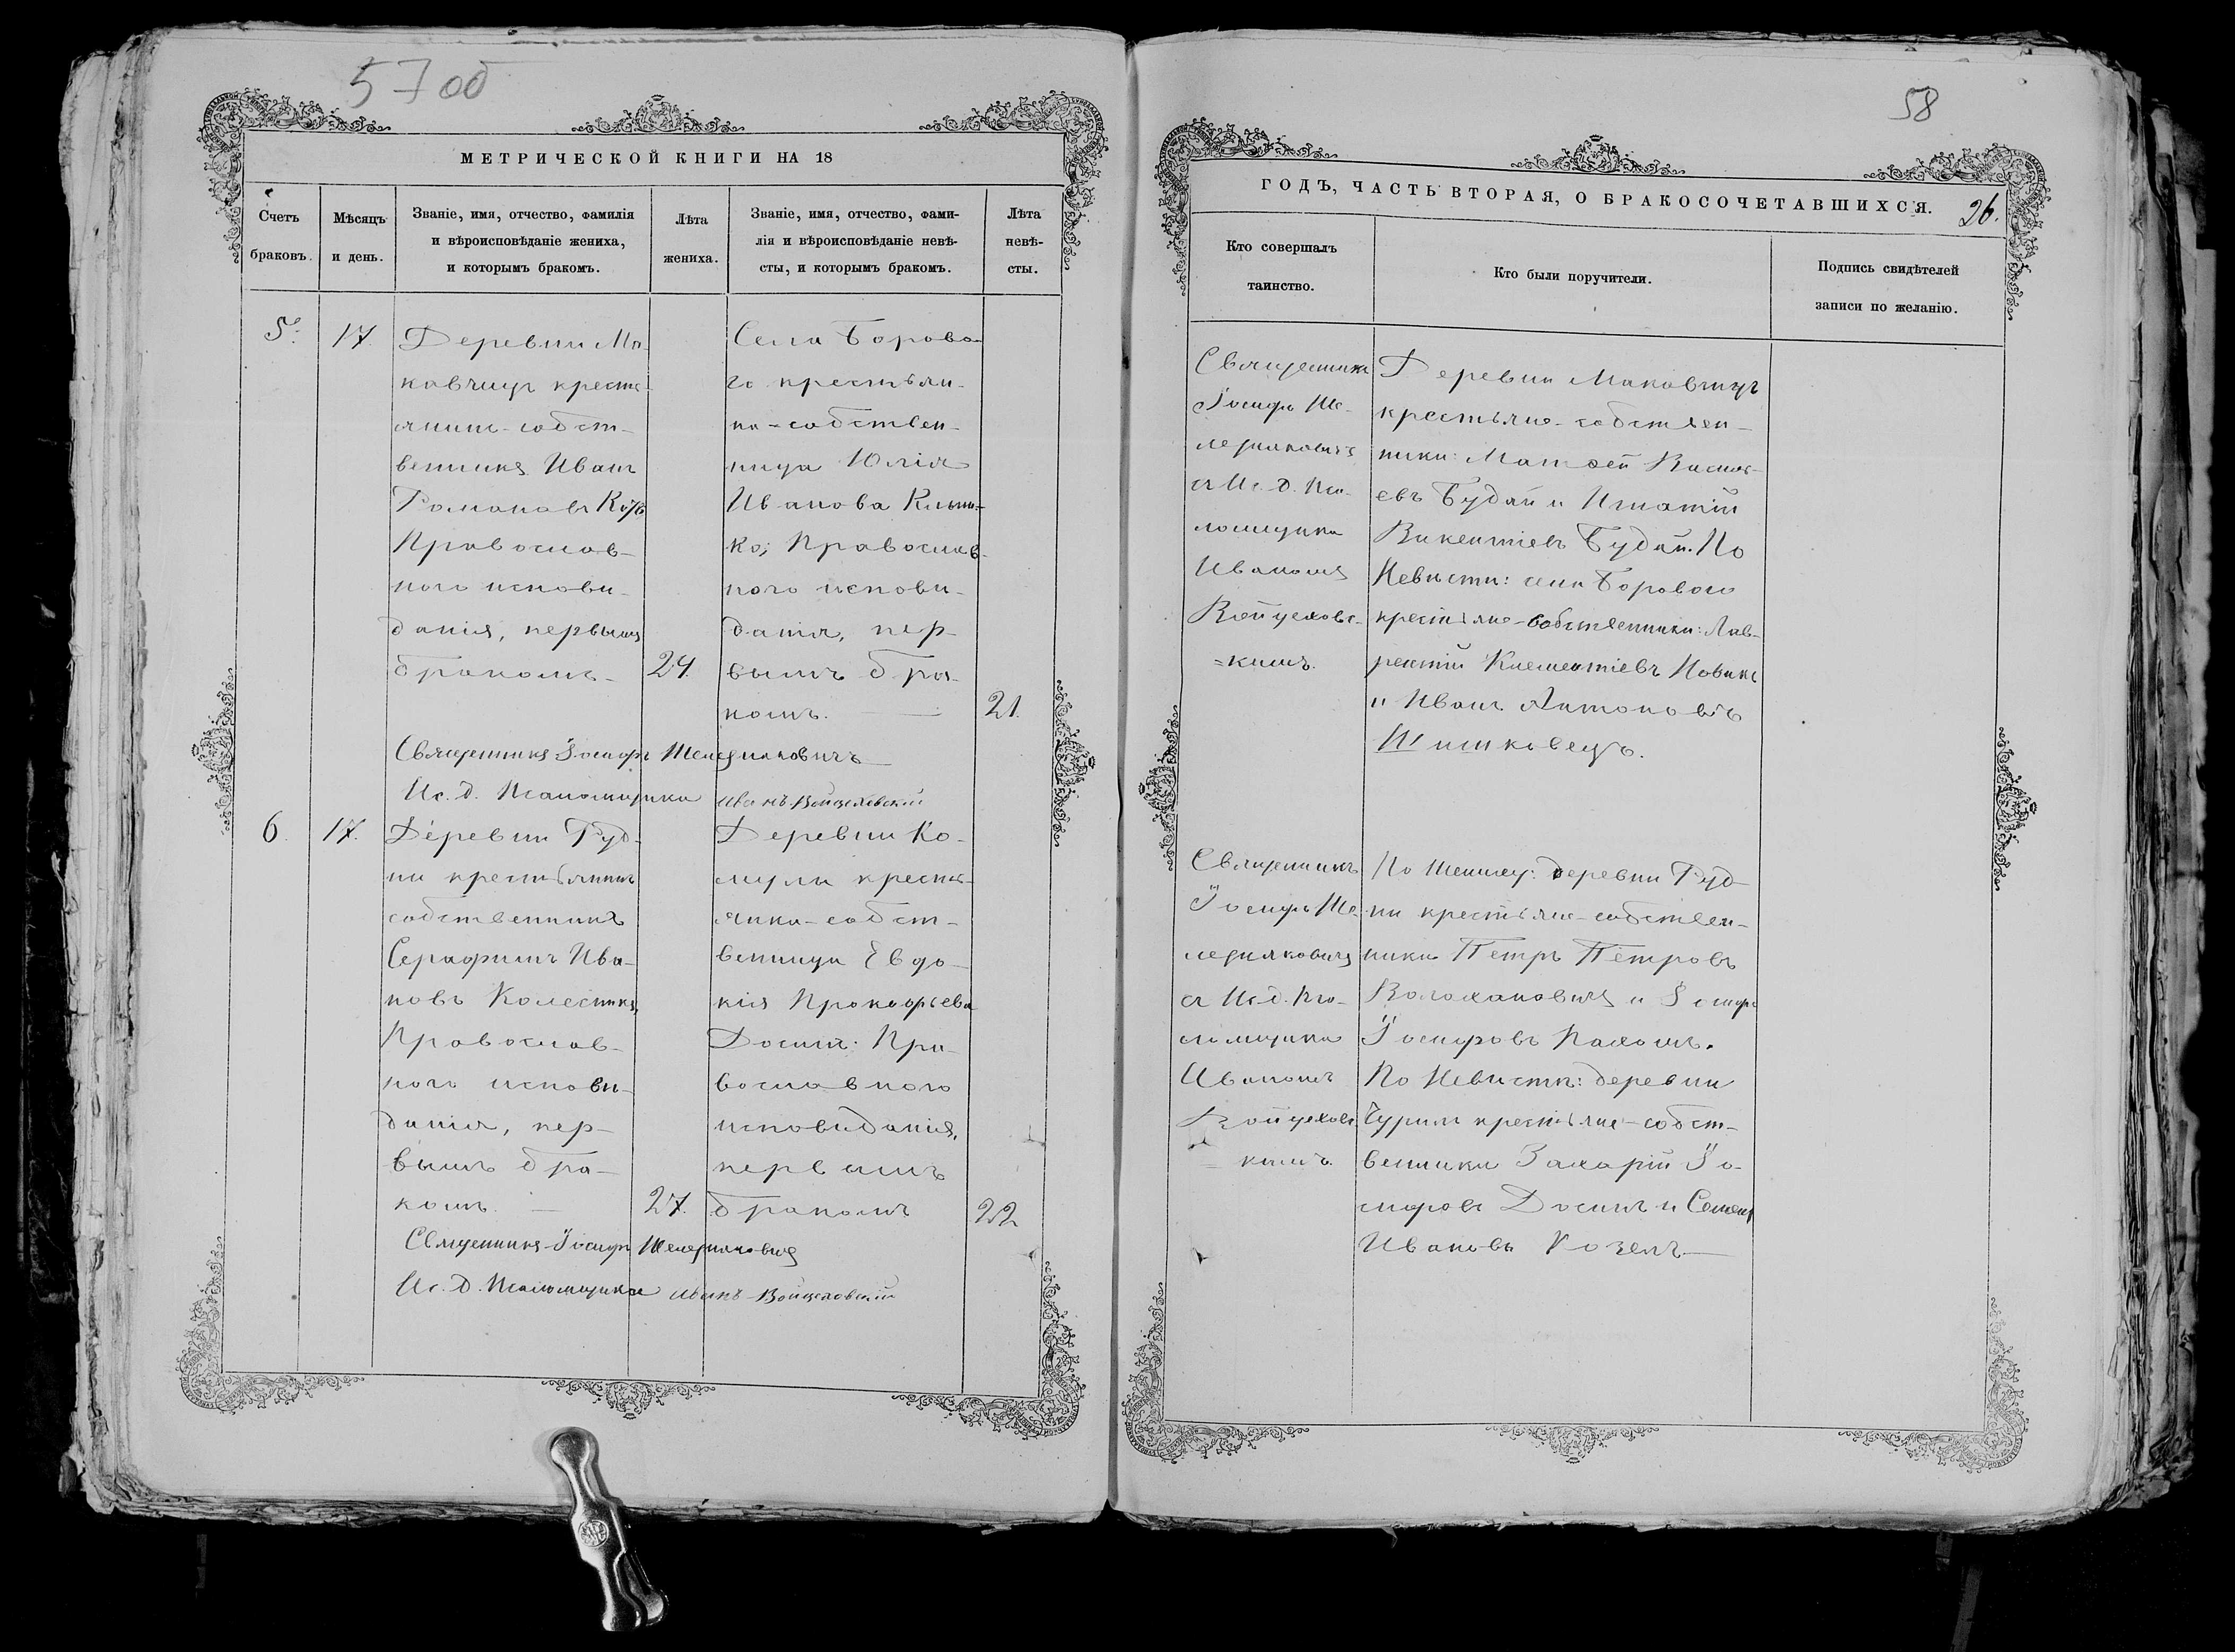 57 об
МЕТРИЧЕСКОЙ КНИГИ НА 18
Счетъ браковъ.
Мѣсяцъ и день.
Званіе, имя, отчество, фамилія
и вѣроисповѣданіе жениха,
и которымъ бракомъ.
Лѣта жениха.
Званіе, имя, отчество, фами-
лія и вѣроисповѣданіе невѣ-
сты, и которымъ бракомъ.
Лѣта невѣ-
сты.
5.
17.
Деревни Ма-
ковчицъ кресть-
янинъ-собст-
венникъ Иванъ
Романовъ
Православ-
ного испови-
данія, первымъ
бракомъ-
24.
Села Борово-
го крестьян-
ка-собствен-
ница Юлія
Иванова
Православ-
ного испови-
данія, пер-
вымъ бра-
комъ.
21.
Священникъ Іосифъ
Ис. д. Псаломщика Иванъ Войцеховскій
6.
17.
Деревни Руд-
ни крестьянинъ
собственникъ
Серафимъ Ива-
новъ Колесникъ,
Православ-
ного испови-
данія, пер-
вымъ бра-
комъ.
27.
Деревни Ко-
кресть-
янка-собст-
венница Евдо-
кія Прокофьева
Досинъ: Пра-
вославного
исповиданія,
первымъ
бракомъ
22
Священникъ Іосифъ
Ис. Д. Псаломщика Иванъ Войцеховскій
58
ГОДЪ, ЧАСТЬ ВТОРАЯ, О БРАКОСОЧЕТАВШИХСЯ.
26.
Кто совершалъ
таинство.
Кто были поручители.
Подпись свидѣтелей
записи по желанію.
Священникъ
Іосифъ
съ Ис. д. Пса-
ломщика
Иваномъ
Войцеховс-
=кимъ.
Деревни Маковчицъ
крестьяне-собствен-
ники: Матѳей
Будай и Игнатій
Викентіевъ Будай. По
Невисти: села Борового
крестьяне-собственники: Лав-
рентій Климентіевъ Новикъ
и Иванъ Антоновъ
Шишковецъ.
Священникъ
Іосифъ
съ Ис. д. Пса-
ломщика
Иваномъ
Войцеховс-
=кимъ.
По Жениху: деревни Руд-
ни крестьяне-собствен-
ники Петръ Петровъ
Волохановичъ и Іосифъ
Іосифовъ Пахомъ.
По Невисти: деревни
крестьяне-собст-
венники Захарій Іо-
сифовъ Досинъ и Семенъ
Ивановъ Козелъ